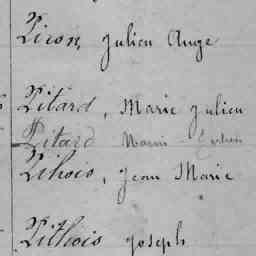 Piron, Julien Ange
Pitard, Marie Julien
Pitard Marie
Pihois, Jean Marie
Pithois Joseph